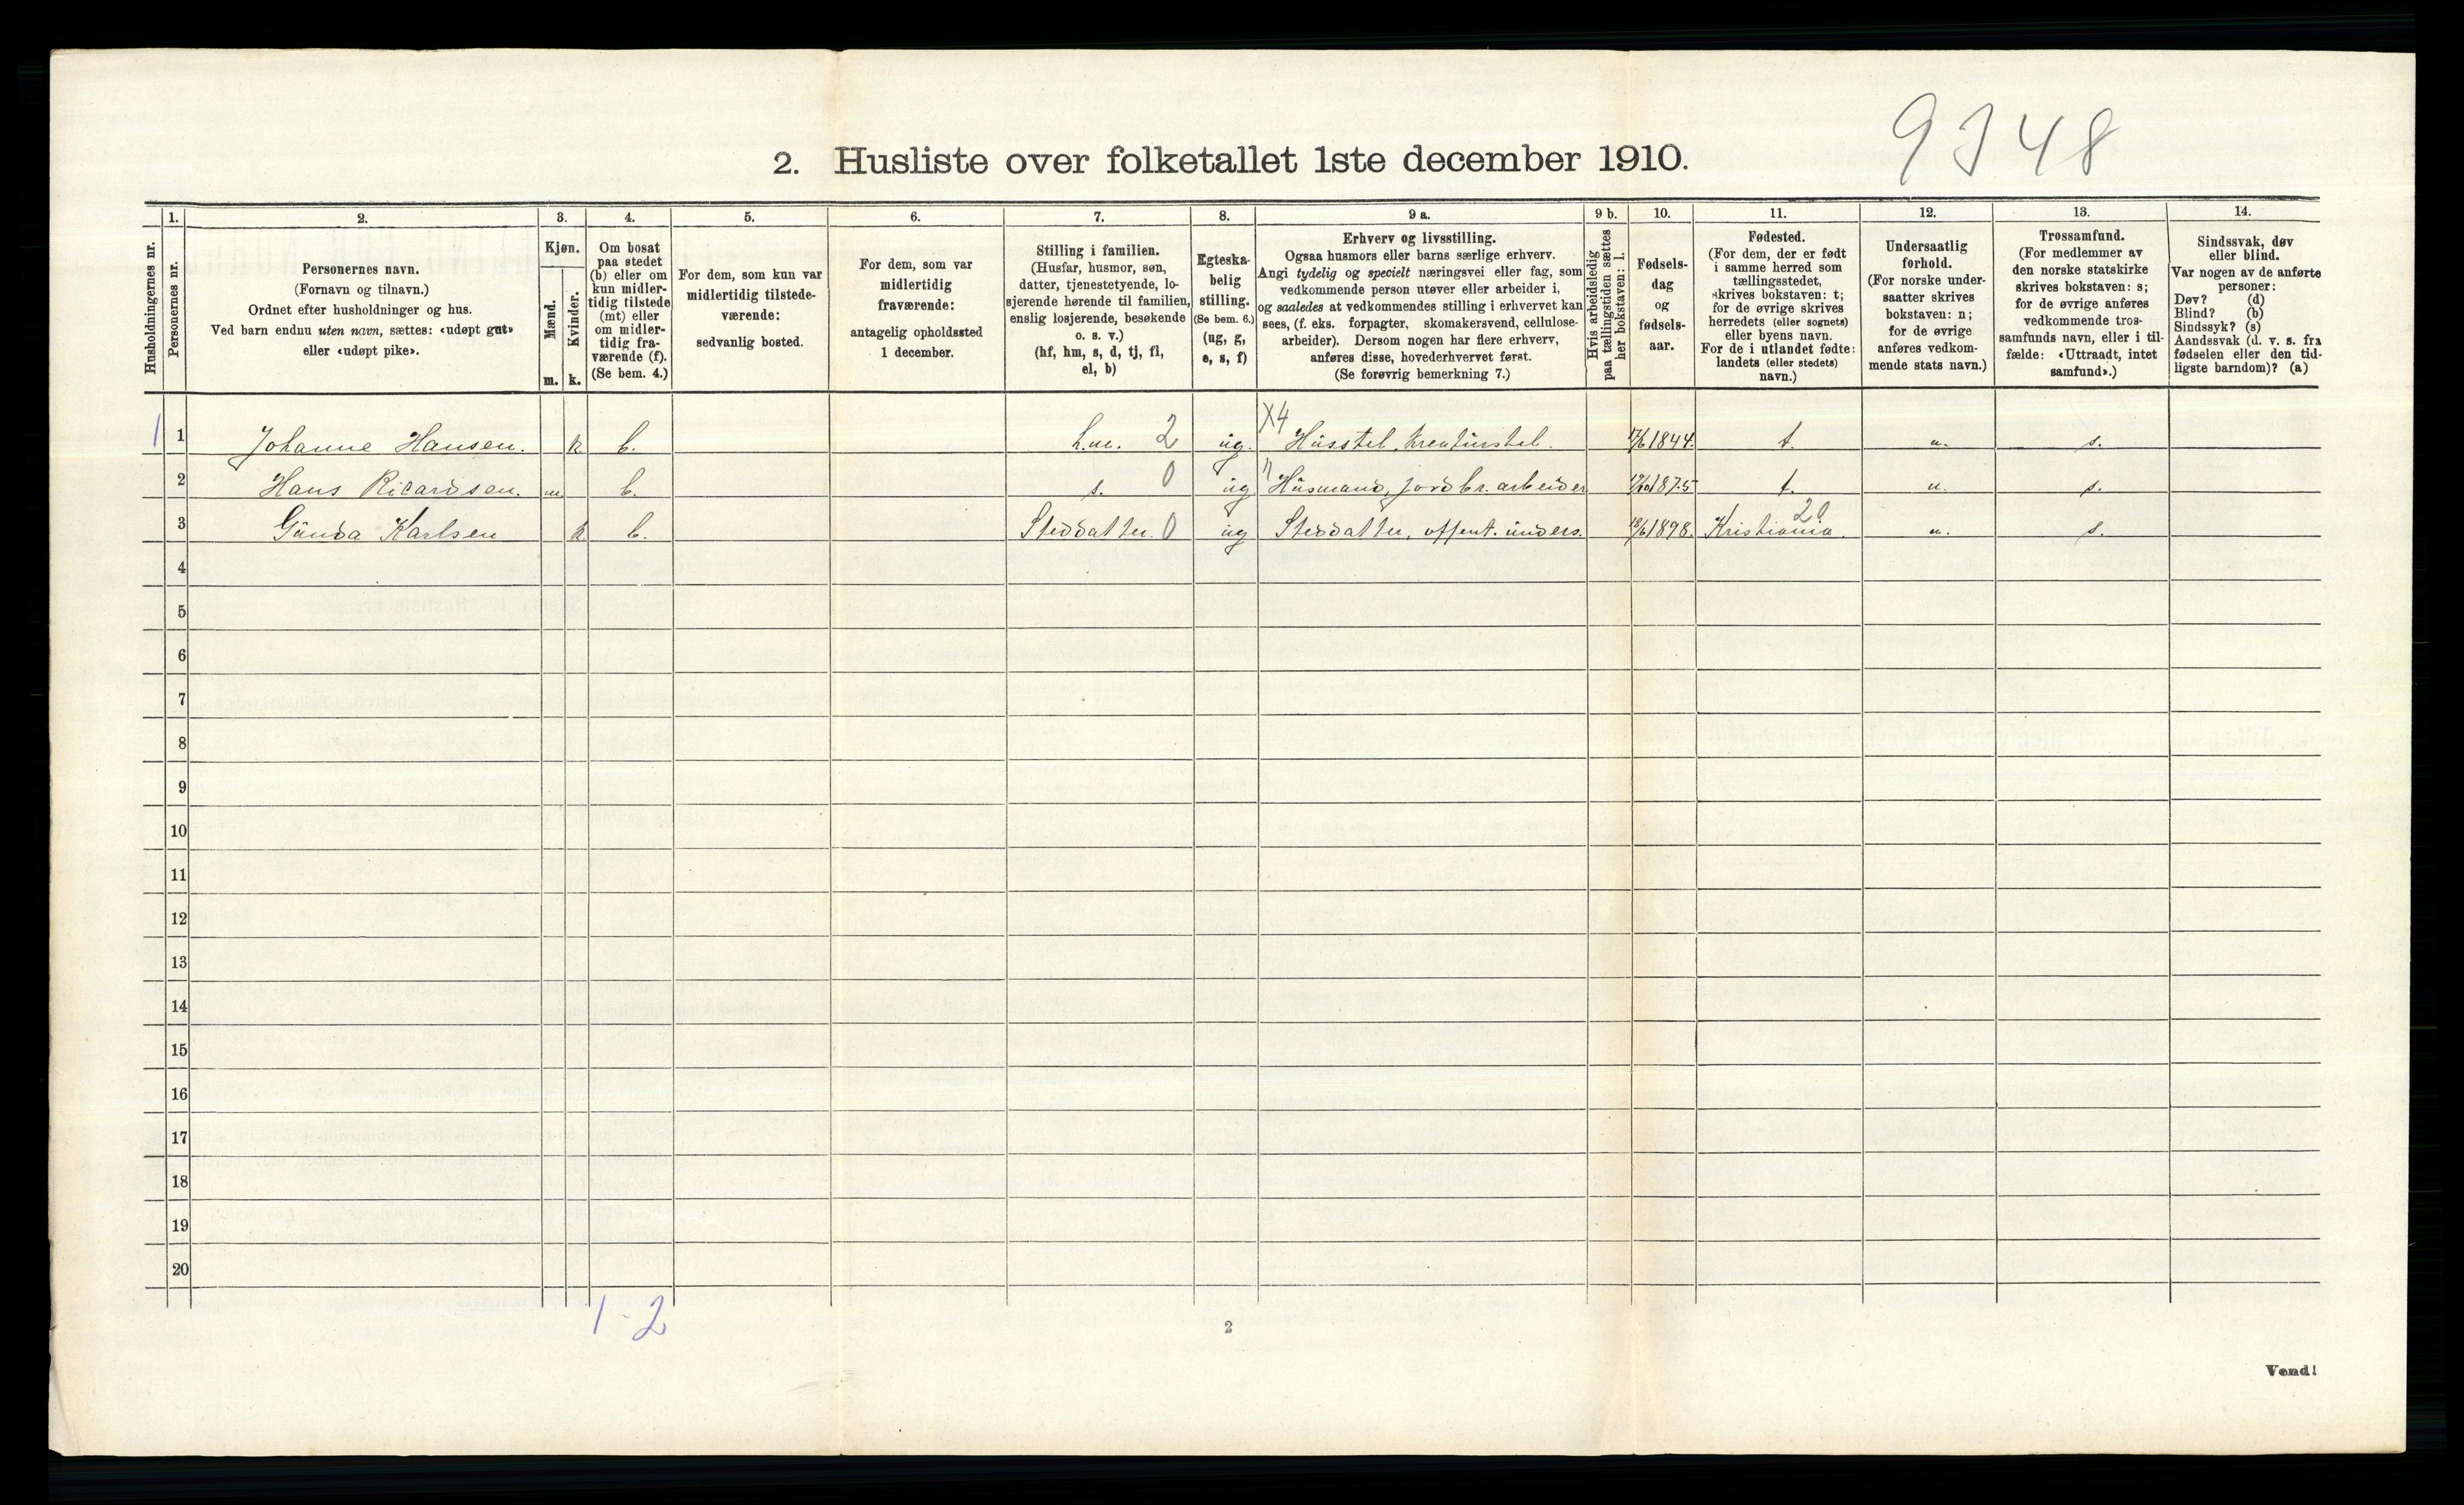 9348
2. Husliste over folketallet 1ste december 1910.
1. 2. 3. 4. 5. 6. 7. 8. 9 a. 9 b. 10. 11. 12. 13. 14.
Husholdningernes nr.
Personernes nr.
Personernes navn.
(Fornavn og tilnavn.)
Ordnet efter husholdninger og hus.
Ved barn endnu uten navn, sættes: «udøpt gut»
eller «udøpt pike».
Kjøn.
Mænd.
Kvinder.
m. k.
Om bosat
paa stedet
(b) eller om
kun midler-
tidig tilstede
(mt) eller
om midler-
tidig fra-
værende (f).
(Se bem. 4.)
For dem, som kun var
midlertidig tilstede-
værende:
sedvanlig bosted.
For dem, som var
midlertidig
fraværende:
antagelig opholdssted
1 december.
Stilling i familien.
(Husfar, husmor, søn,
datter, tjenestetyende, lo-
sjerende hørende til familien,
enslig losjerende, besøkende
o. s. v.)
(hf, hm, s, d, tj, fl,
el, b)
Egteska-
belig
stilling.
(Se bem. 6.)
(ug, g,
e, s, f)
Erhverv og livsstilling.
Ogsaa husmors eller barns særlige erhverv.
Angi tydelig og specielt næringsvei eller fag, som
vedkommende person utøver eller arbeider i,
og saaledes at vedkommendes stilling i erhvervet kan
sees, (f. eks. forpagter, skomakersvend, cellulose-
arbeider). Dersom nogen har flere erhverv,
anføres disse, hovederhvervet først.
(Se forøvrig bemerkning 7.)
Hvis arbeidsledig
paa tællingstiden sættes
her bokstaven: l.
Fødsels-
dag
og
fødsels-
aar.
Fødested.
(For dem, der er født
i samme herred som
tællingsstedet,
skrives bokstaven: t;
for de øvrige skrives
herredets (eller sognets)
eller byens navn.
For de i utlandet fødte:
landets (eller stedets)
navn.)
Undersaatlig
forhold.
(For norske under-
saatter skrives
bokstaven: n;
for de øvrige
anføres vedkom-
mende stats navn.)
Trossamfund.
(For medlemmer av
den norske statskirke
skrives bokstaven: s;
for de øvrige anføres
vedkommende tros-
samfunds navn, eller i til-
fælde: «Uttraadt, intet
samfund».)
Sindssvak, døv
eller blind.
Var nogen av de anførte
personer:
Døv? (d)
Blind? (b)
Sindssyk? (s)
Aandssvak (d. v. s. fra
fødselen eller den tid-
ligste barndom)? (a)
X4
1 1 Johanne Hansen. k. b. h.m. 2 ug. Husstel, kreaturstel. 1844. t. n. s.
2 Hans Ricardsen. m. b. s. 0 ug Husmand, jordbr. arbeider 1875 t. n. s.
20
3 Gunda Karlsen k. b. Steddatter. 0 ug Steddatter, offent. unders. 1898. Kristiania. n. s.
4
5
6
7
8
9
10
11
12
13
14
15
16
17
18
19
20
1-2
2
Vend!